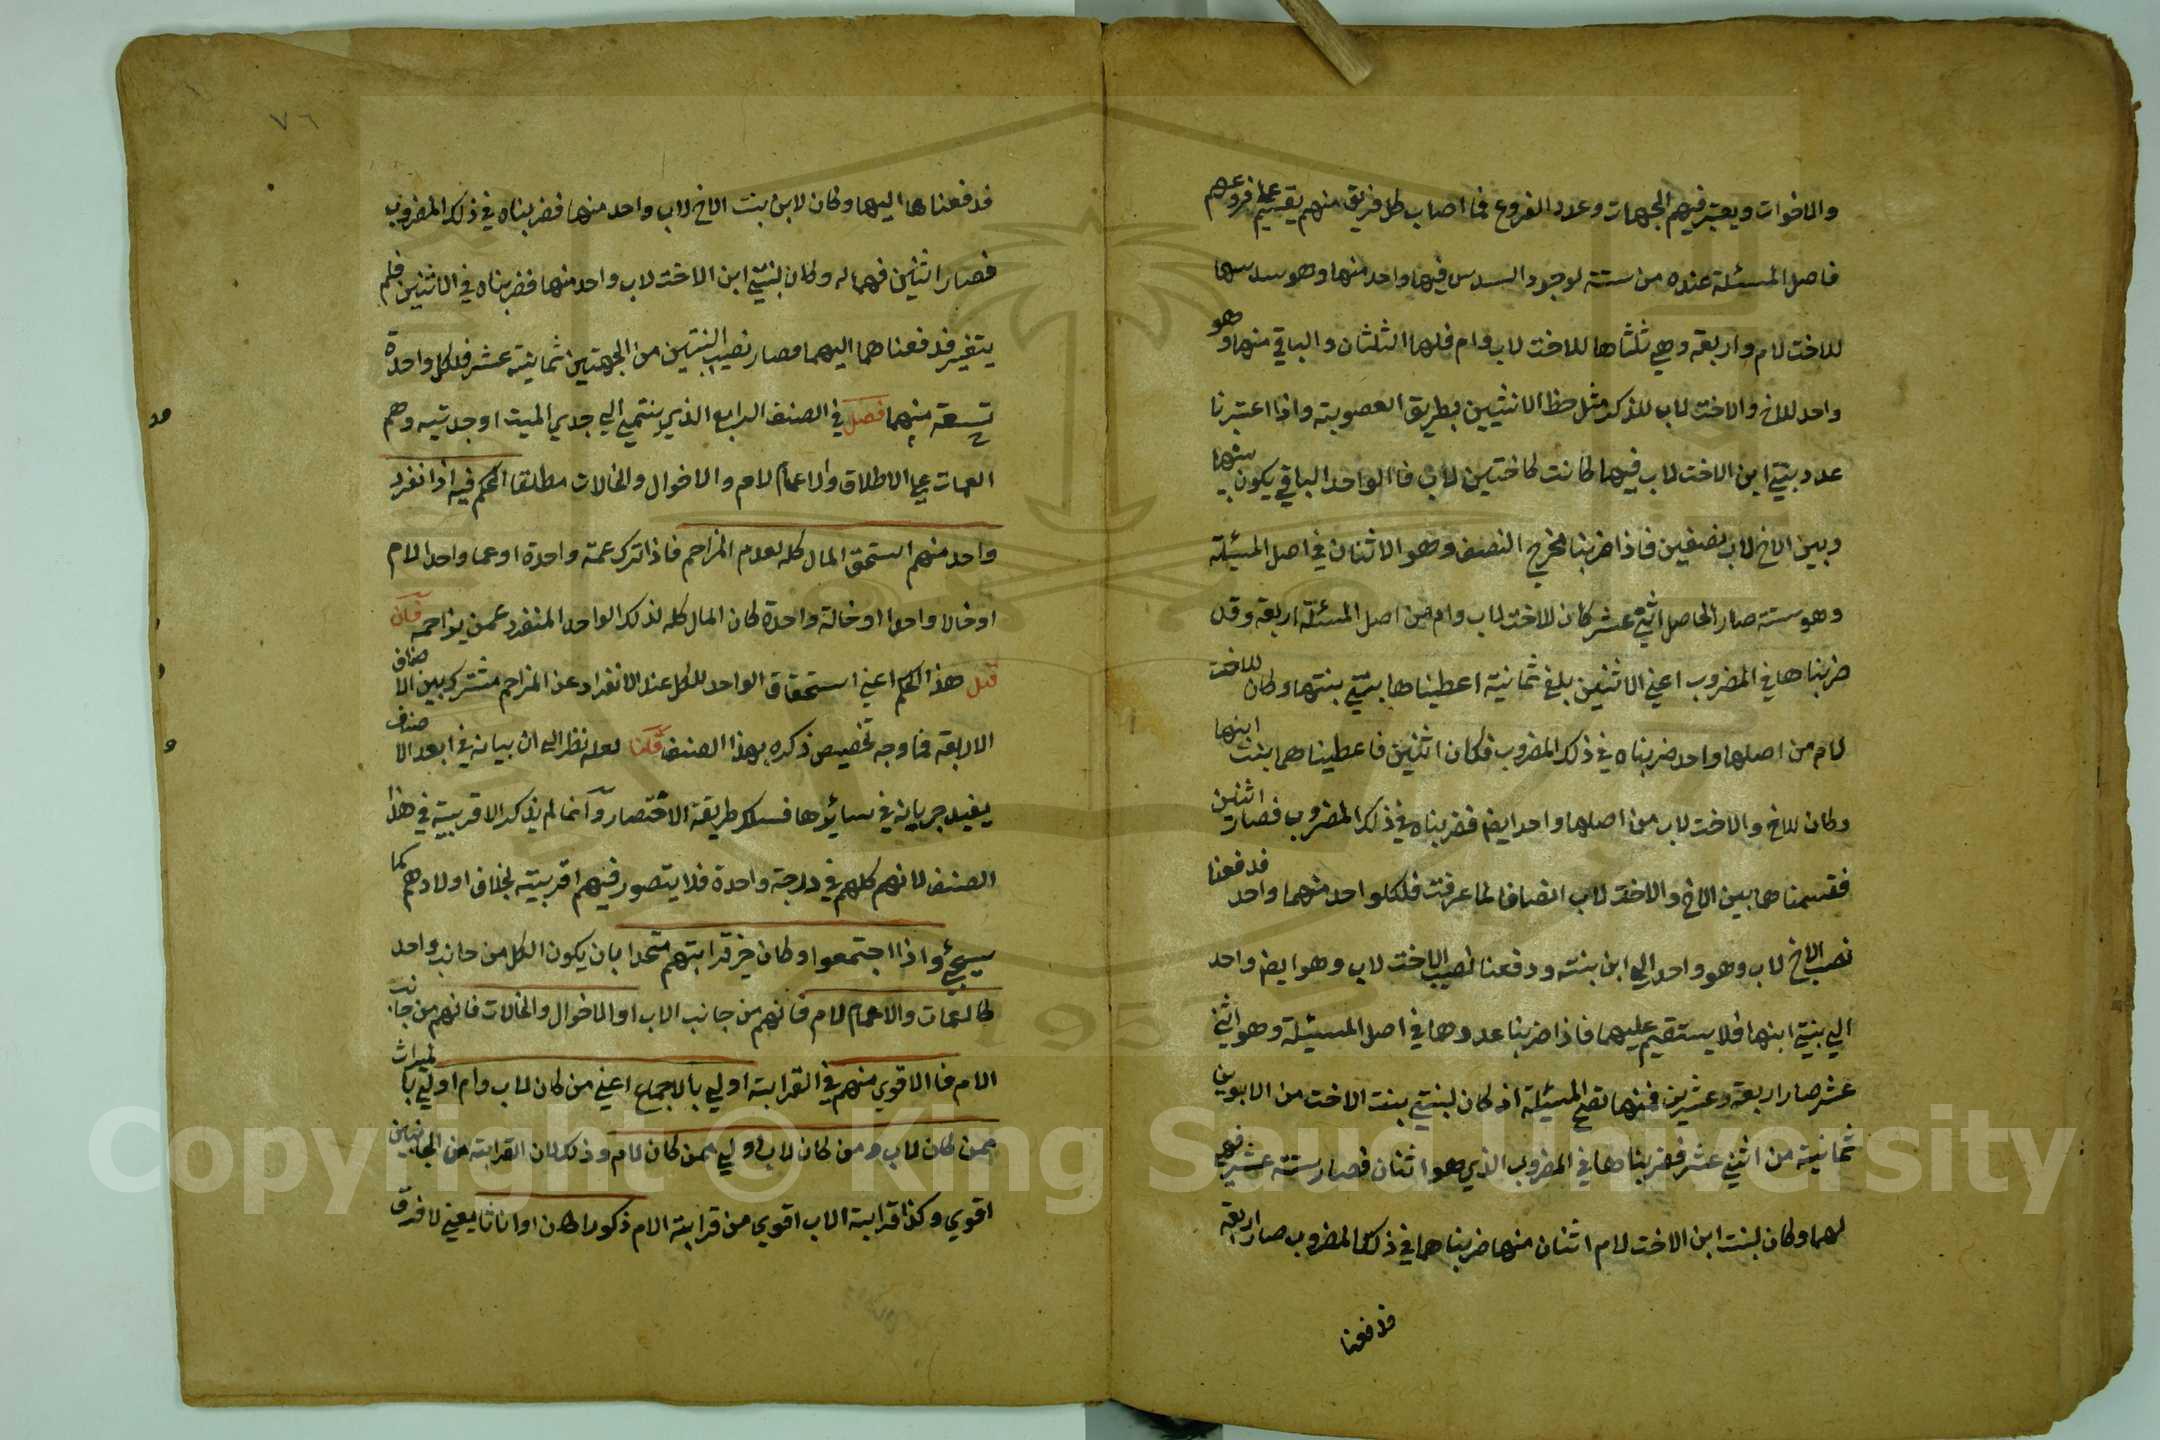 والاخوات ويعتبر فيهم الجهات وعدد الفروع فما اصاب كل فريق منهم يقسم على فروعهم
فاصل المسئلة عنده من ستة لوجود السدس فيها واحد منها وهو سدسها
للاخت لام واربعة وهي ثلثاها للاخت لاب وام فلها الثلثان والباقي منها وهو
واحد للاخ والاخت لاب للذكر مثل حظ الانثيين بطريق العصوبة واذا اعتبرنا
عدد بنتي ابن الاخت لاب فيها كانت كاختين لاب فالواحد الباقي يكون بينها
وبين الاخ لاب نصفين فاذا ضربنا مخرج النصف وهو الاثنان في اصل المسئلة
وهو ستة صار الحاصل اثني عشر كان للاخت لاب وام من اصل المسئلة اربعة وقد
ضربناها في المضروب اعني الاثنين بلغ ثمانية اعطيناها بنتي بنتها وكان للاخت
لام من اصلها واحد ضربناه في ذلك المضروب فكان اثنين فاعطيناهما بنت ابنها
وكان للاخ والاخت لاب من اصلها واحد ايضا فضربناه في ذلك المضروب فصار اثنين
فقسمناهما بين الاخ والاخت لاب انصافا لما عرفت فلكل واحد منهما واحد فدفعنا
نصيب الاخ لاب وهو واحد الى ابن بنته ودفعنا نصيب الاخت لاب وهو ايضا واحد
الي بنتي ابنها فلا يستقيم عليهما فاذا ضربنا عددهما في اصل المسئلة وهو اثني
عشر صار اربعة وعشرين فمنها تصح المسئلة اذ كان لبنتي بنت الاخت من الابوين
ثمانية من اثني عشر فضربناها في المضروب الذي هو اثنان فصار ستة عشر فهي
لهما وكان لبنت ابن الاخت لام اثنان منها ضربناهما في ذلك المضروب صار اربعة
فدفعنا
٧٦
فدفعناها اليها وكان لابن بنت الاخ لاب واحد منها فضربناه في ذلك المضروب
فصار اثنين فهما له وكان لبنتي ابن الاخت لاب واحد منها فضربناه في الاثنين فلم
يتغير فدفعناهما اليهما فصار نصيب البنتين من الجهتين ثمانية عشر فلكل واحدة
تسعة منهما فصل في الصنف الرابع الذي ينتمي الي جدي الميت او جدتيه وهم
العمات على الاطلاق والاعمام لام والاخوال والخالات مطلقا الحكم فيه اذا انفرد
واحد منهم استحق المال كله لعدم المزاحم فاذا ترك عمة واحدة او عما واحدا لام
او خالا واحدا او خالة واحدة كان المال كله لذلك الواحد المنفرد عمن يزاحمه فان
قيل هذا الحكم اعني استحقاق الواحد للكل عند الانفراد عن المزاحم مشترك بين الاصناف
الاربعة فما وجه تخصيص ذكره بهذا الصنف قلنا لعله نظر الى ان بيانه في ابعد الاصناف
يفيد جريانه في سائرها فسلك طريقة الاختصار وانما لم يذكر الاقربية في هذا
الصنف لانهم كلهم في درجة واحدة فلا يتصور فيهم اقربية بخلاف اولادهم كما
سيجئ واذا اجتمعوا وكان حيز قرابتهم متحدا بان يكون الكل من جانب واحد
كالعمات والاعمام لام فانهم من جانب الاب او الاخوال والخالات فانهم من جانب
الام فالاقوي منهم في القرابة اولي بالاجماع اعني من كان لاب وام اولي بالميراث
ممن كان لاب ومن كان لاب اولي ممن كان لام وذلك لان القرابة من الجانبين
اقوي وكذا قرابة الاب اقوي من قرابة الام ذكورا كان او اناثا يعني لا فرق